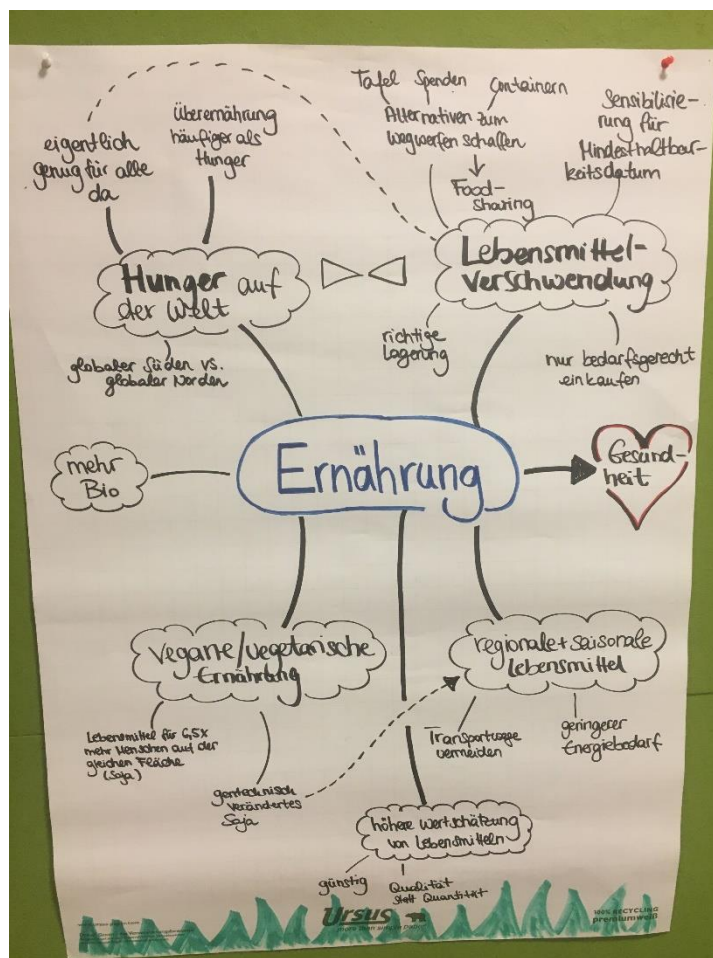 Tafel Spenden Containern
Alternativen zum
Wegwerfen schaffen
Food-
sharing
Sensibilisie-
rung für
Mindesthaltbar-
keitsdatum
eigentlich
genug für alle
da
Überernährung
häufiger als
Hunger
Hunger auf
der Welt
Lebensmittel-
verschwendung
globaler Süden vs.
globaler Norden
richtige
Lagerung
nur bedarfsgerecht
einkaufen
mehr
Bio
Ernährung
Gesund-
heit
vegane/vegetarische
Ernährung
regionale + saisonale
Lebensmittel
Lebensmittel für 6,5x
mehr Menschen auf der
gleichen Fläche
(Soja)
gentechnisch
verändertes
Soja
Transportwege
vermeiden
geringerer
Energiebedarf
höhere Wertschätzung
von Lebensmitteln
günstig
Qualität
statt Quantität
Ursus
100% RECYCLING
premiumweiß